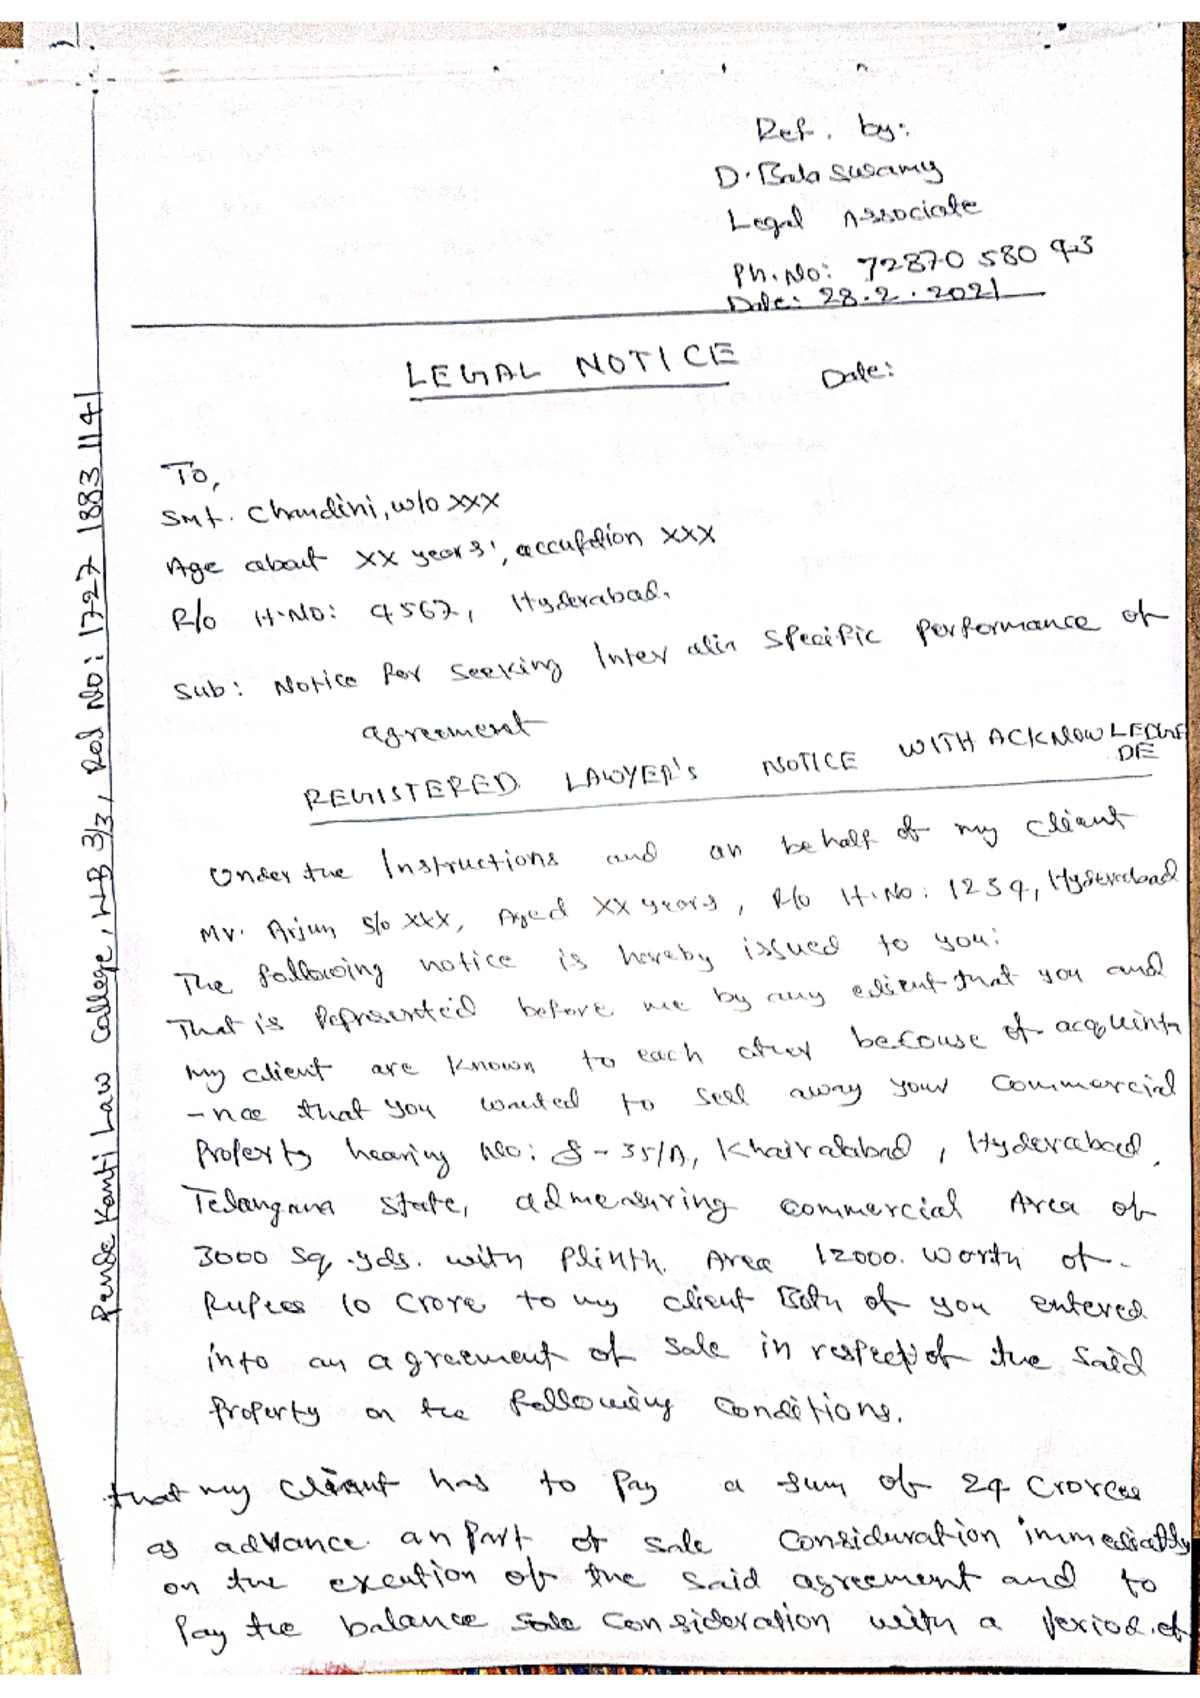 Ref. by:
D. Bala Swamy
Legal Associate
Ph. No: 72870 580 93
Date: 28.2.2021
LEGAL NOTICE
Date:
To,
Smt. Chandini, w/o XXX
Age about XX years', accupation XXX
R/o H.No: 4567, Hyderabad.
Sub: Notice for seeking Inter alia specific performance of
agreement
REGISTERED LAWYER'S NOTICE WITH ACKNOWLEDGE
DE
Under the Instructions and on behalf of my client
Mr. Arjun s/o XXX, Aged XX years, R/o H.No: 1234, Hyderabad
The following notice is hereby issued to you:
That is represented before me by my client that you and
my client are known to each other because of acquinta
-nce that you wanted to sell away your commercial
Property hearing No: 8-35/A, Khairatabad, Hyderabad.
Telangana State, admeasuring commercial Area of
3000 Sq.yds. with Plinth Area 12000. worth of.
Rupees 10 Crore to my client Both of you entered
into an agreement of sale in respect of the said
property on the following conditions.
that my client has to pay a sum of 24 Crores
as advance an part of sale consideration immediatly
on the exeution of the said agreement and to
Pay the balance sale consideration with a Period.of
Pende Kanti Law College, LLB 3/3, Rol No: 1727 1883 1141